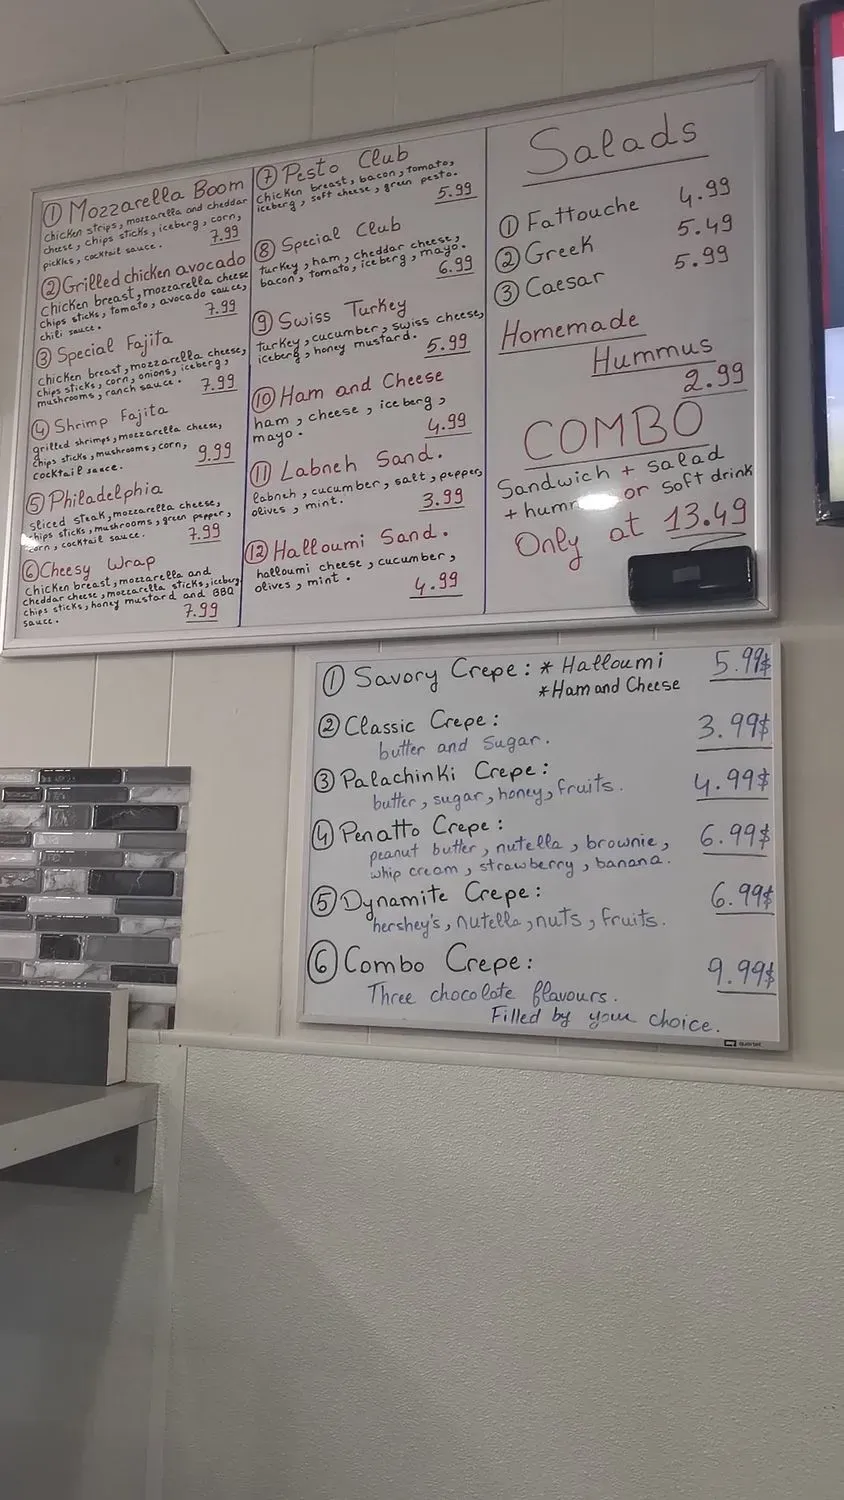 ① Mozzarella Boom
chicken strips, mozzarella and cheddar
cheese, chips sticks, iceberg, corn,
pickles, cocktail sauce. 7.99
② Grilled chicken avocado
chicken breast, mozzarella cheese
chips sticks, tomato, avocado sauce,
chili sauce. 7.99
③ Special Fajita
chicken breast, mozzarella cheese,
chips sticks, corn, onions, iceberg,
mushrooms, ranch sauce. 7.99
④ Shrimp Fajita
grilled shrimps, mozzarella cheese,
chips sticks, mushrooms, corn,
cocktail sauce. 9.99
⑤ Philadelphia
sliced steak, mozzarella cheese,
chips sticks, mushrooms, green pepper,
corn, cocktail sauce. 7.99
⑥ Cheesy Wrap
chicken breast, mozzarella and
cheddar cheese, mozzarella sticks, iceburg
chips sticks, honey mustard and BBQ
sauce. 7.99
⑦ Pesto Club
chicken breast, bacon, tomato,
iceberg, soft cheese, green pesto.
5.99
⑧ Special Club
turkey, ham, cheddar cheese,
bacon, tomato, iceberg, mayo.
6.99
⑨ Swiss Turkey
turkey, cucumber, swiss cheese,
iceberg, honey mustard. 5.99
⑩ Ham and Cheese
ham, cheese, iceberg,
mayo. 4.99
⑪ Labneh Sand.
labneh, cucumber, salt, pepper,
olives, mint. 3.99
⑫ Halloumi Sand.
halloumi cheese, cucumber,
olives, mint. 4.99
Salads
① Fattouche 4.99
② Greek 5.49
③ Caesar 5.99
Homemade
Hummus
2.99
COMBO
Sandwich + salad
+ or soft drink
Only at 13.49
① Savory Crepe: * Halloumi 5.99$
* Ham and Cheese
② Classic Crepe: 3.99$
butter and Sugar.
③ Palachinki Crepe: 4.99$
butter, sugar, honey, fruits.
④ Penatto Crepe: 6.99$
peanut butter, nutella, brownie,
whip cream, strawberry, banana.
⑤ Dynamite Crepe: 6.99$
hershey's, nutella, nuts, fruits.
⑥ Combo Crepe: 9.99$
Three chocolate flavours.
Filled by your choice.
quartet